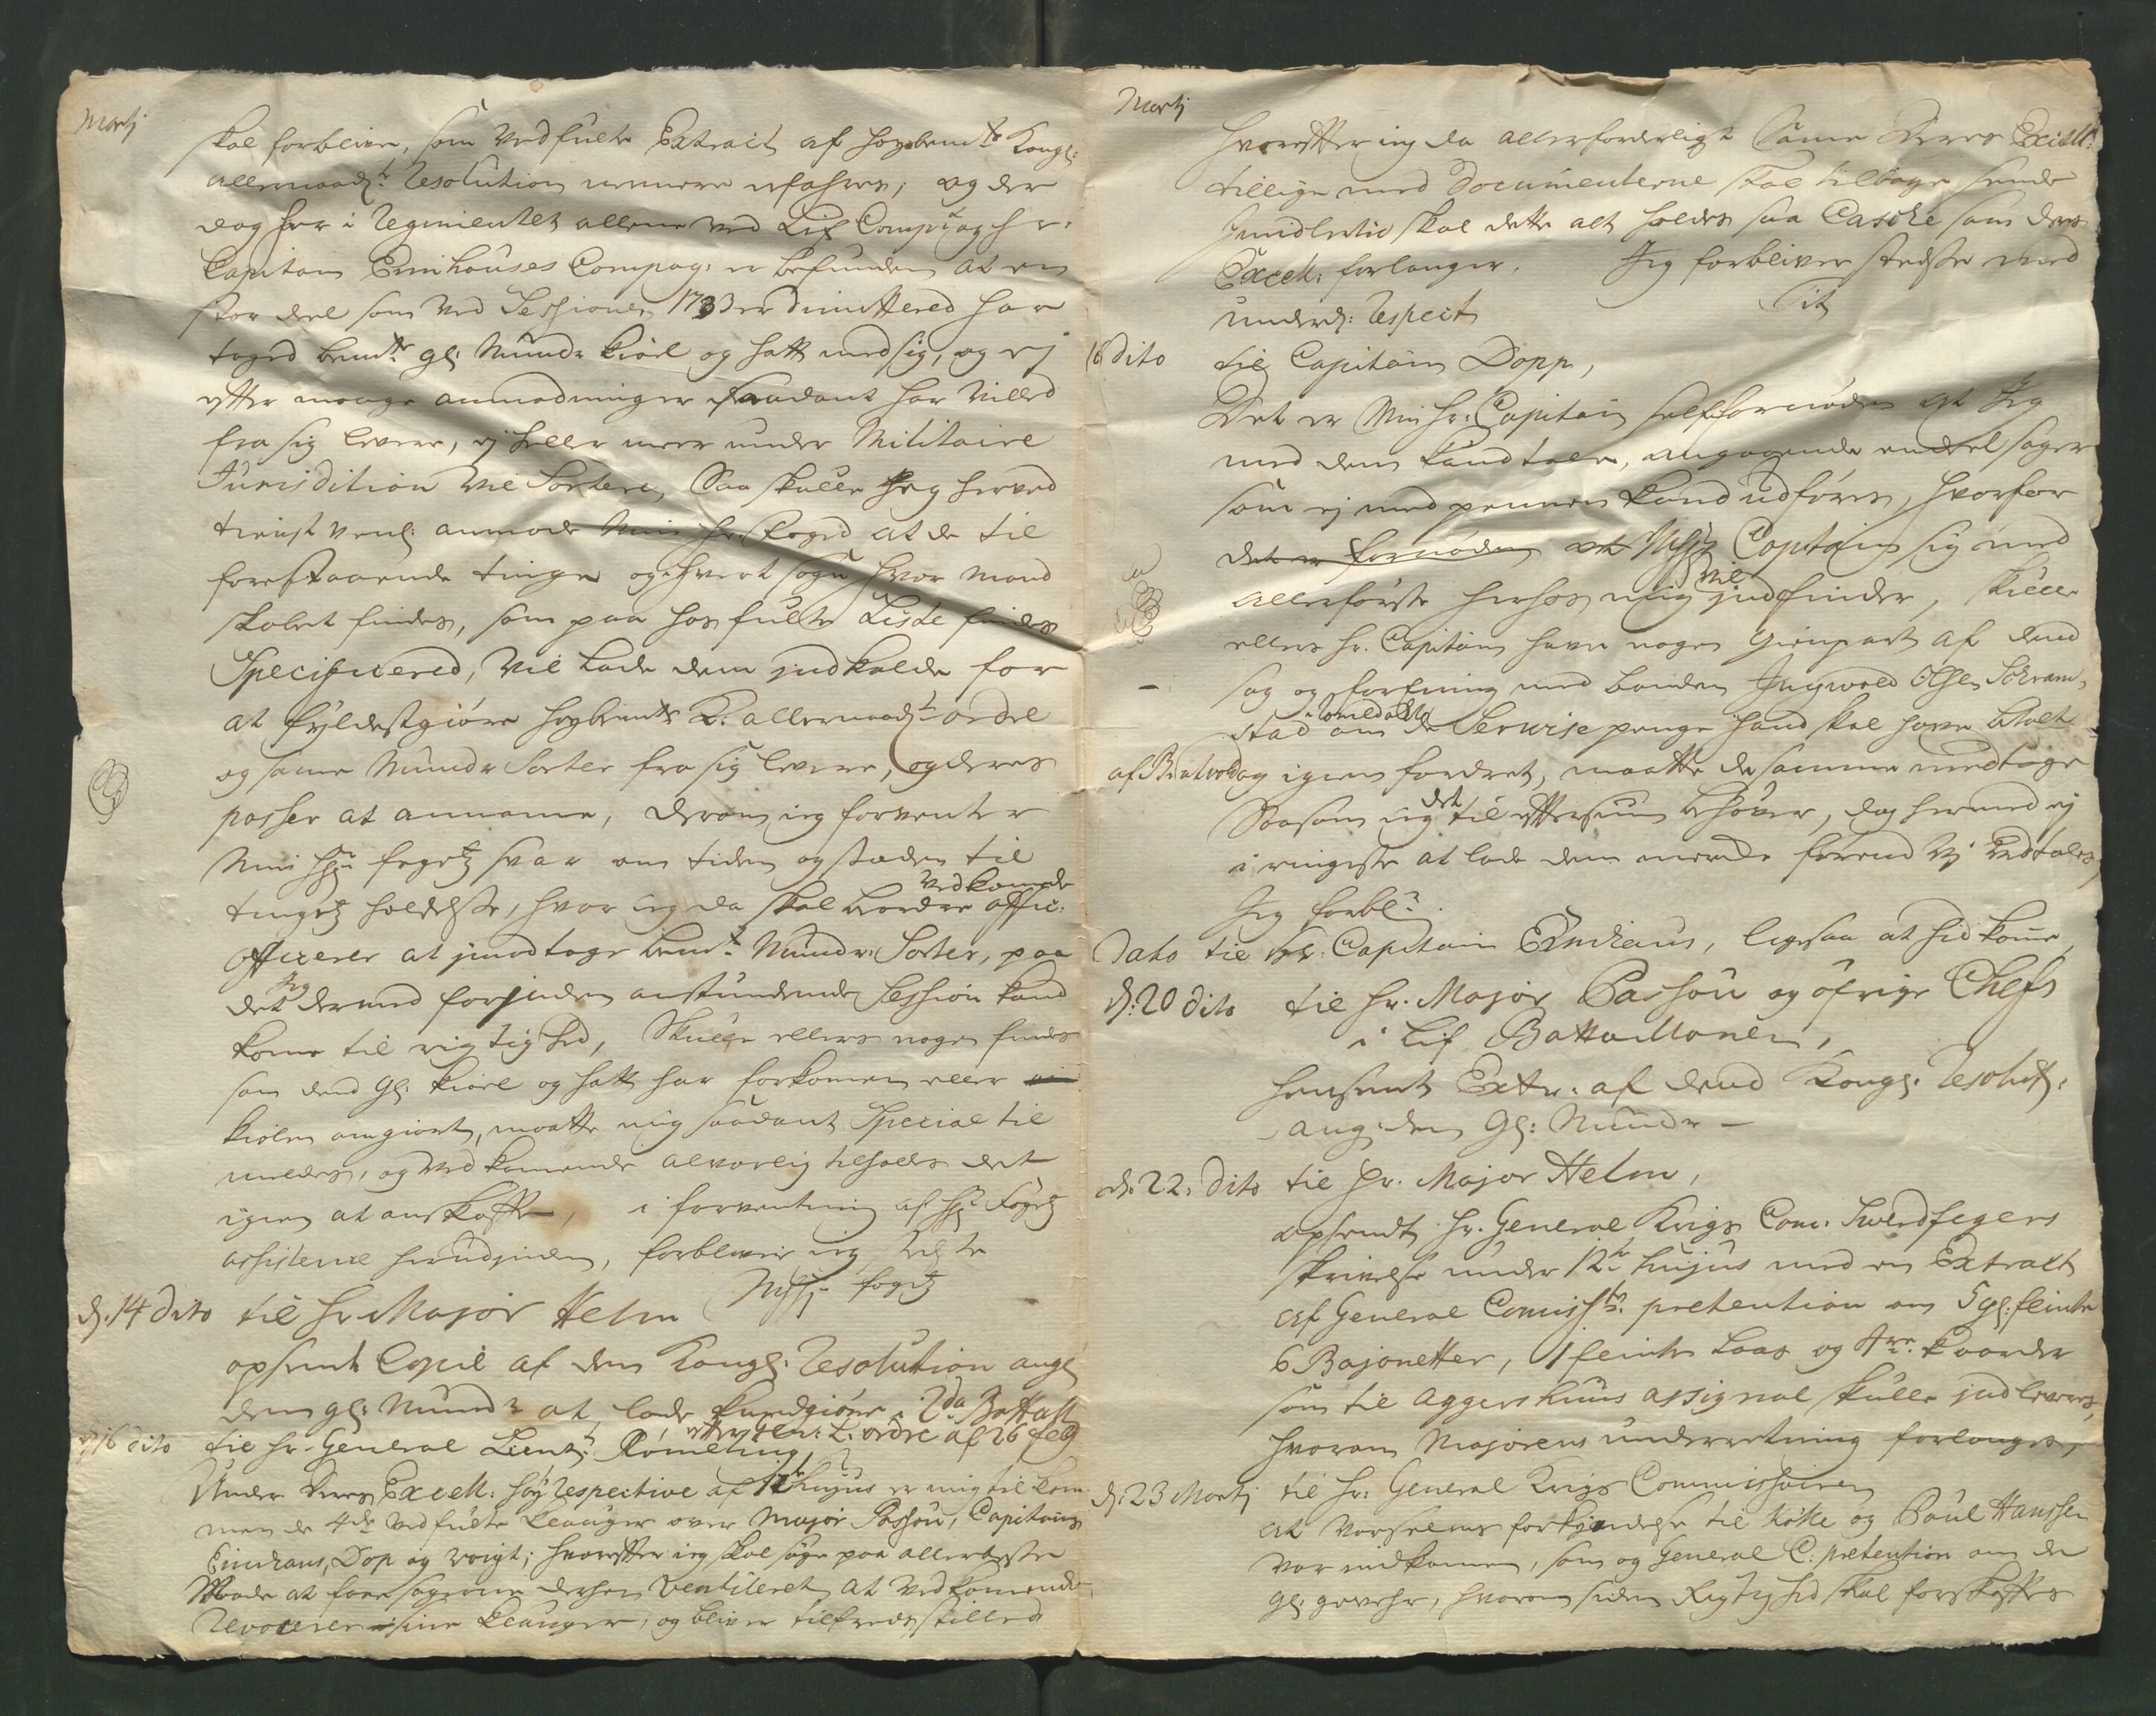 Martj
skal forblive, som Vedfulte Extract af høybemte Kongl:
allernaadt Resolution nermere udfahrer; og der
dog her i Regimentet allene ved Lif Compag: og hr.
Capitain Emhauses Compag: er befunden at en
stor deel som Ved Sessionen 1733 er dimitteret har
taged bemte gl: Mundr kiol og hatt med sig, og ej
efter mange anmodninger saadant har villed
fra sig levere, ej heller mere under Militaire
Jurisdition Vil Sortere, Saa skulle Jeg herved
tienst venl: anmode Min hr. Foged at de til
forestaaende tinge og hvert sogn hvor mand
skabet findes, som paa hosfulte Liste findes
Specificered, Vil lade dem jndkalde for
at fyldestgiøre høybemte K: allernaadt ordre
og samme Mundr Sorter fra sig levere, og deres
passer at annamme, derom jeg forventer
Min hr fogetz svar om tiden og stæden til
tingetz holdelse, hvor jeg da skal beordre Vedkomde
Officerer at jmodtage bemte Mundr Sorter, paa
det Jeg dermed for jnden anstundende Session kand
komme til rigtighed, Skulle ellers nogen findes
som dend gl: kiol og hatt har forkommen eller
kiolen omgiort, maatte mig saadant Special til
meldes, og Vedkommende alvorlig tilholdes det
igien at anskaffe, i forventning af hr Fogetz
assistence herudjnden, forbliver jeg
d. 14 dito til hr. Major Helm
opsendt Copie af den Kongl: Resolution ang
den gl: Mundr at lade kundgiøre i 2da Battall
efter Gen: L: ordre af 26 feb
d 16 dito til hr. General Lieut: Römeling
Under Deres Excell: høy respective af 12te hujus er mig til kom
men de 4de Vedfulte klauger over Major Passou, Capitains
Emhaus, Dop og Voigt; hvorefter jeg skal søge paa allerbeste
Maade at faae sagerne derhen Ventileret at Vedkommende
Revocerer sine klauger, og bliver tilfredsstilled
Martj
hvorefter jeg da allerforderligst Samme Deres Excell:
tillige med Documenterne skal tilbage sende
jmidlertid skal dette alt holdes saa Cachè som Deres
Excell: forlanger. Jeg forbliver stedse med
underd: Respect
16 dito til Capitain Dopp,
Det er Min hr: Capitain selffornøden at Jeg
med dem kand tale, angaaende endeel sager
som ej med pennen kand udføres, hvorfor
det er fornøden at Capitain sig med
allerførste herhos mig Vil jndfinder, skulle
ellers hr. Capitain have nogen Gienpart af dend
sag og forhning med bonden Jngvold Olsen
stad om de Servise penge hand skal have betalt
af Bratvold og igien fordret, maatte de samme medtage
Saasom jeg det til eftersiun behøver, dog hermed ej
i ringeste at lade dem mercke førend Vj Vedtales,
Jeg forbl:
Dato til hr: Capitain Emhaus, ligesaa at hid komme
d: 20 dito til hr. Major Passou og øfrige Chefs
i Lif Battaillonen,
hensendt Extr: af dend Kongl: Resolut:
ang: den gl: Mundr
d. 22: dito til hr. Major Helm,
opsendt hr. General Krigs Com: Swerdfegers
skrivelse under 12te hujus med en Extract
af General Comiss: pretention om 5 gl: flinter
6 Bajonetter, 1 flinte Laas og kaarder
som til Aggershuus Arsignal skulle jndleveres,
hvorom Majorens underretning forlanges,
d. 23 Martj til hr. General Krigs Commissairen
at Vorselens forkyndelse til og Paul Hanssen
var indkommen, som og General C: pretention om de
gl: gevehr, hvorom siden Rigtighed skal forskaffes